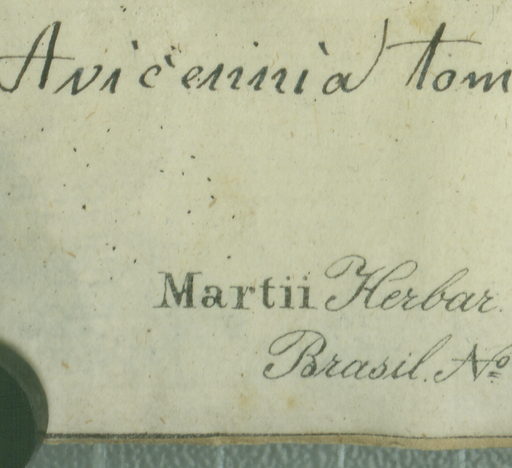 Avicennia tom
Martii Herbar.
Brasil. Nº